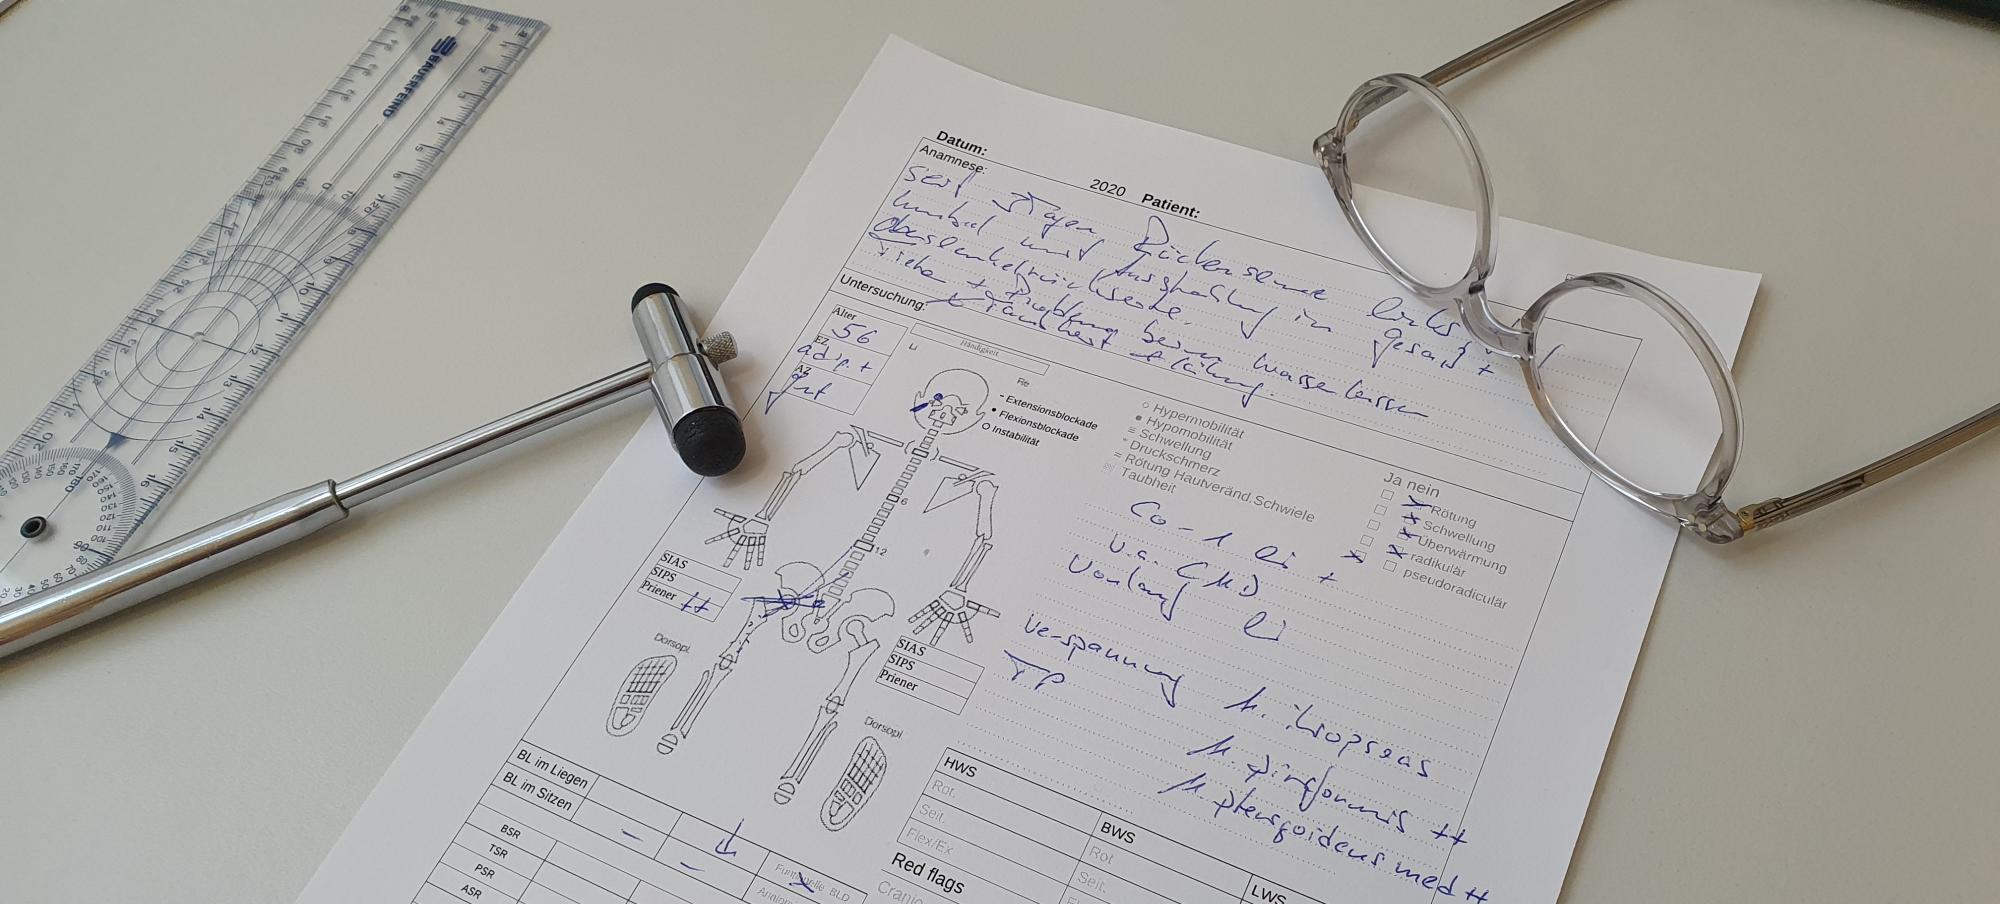 BAUERFEIND
Datum: 2020 Patient:
Anamnese:
seit Tagen Rückenschmerz links
lumbal mit Ausstrahlung in Gesäß +
Oberschenkelrückseite.
ziehen + Probleme beim Wasserlassen
Untersuchung:
Alter
56
EZ
adip. +
AZ
gut
Li
Händigkeit
Re
- Extensionsblockade
• Flexionsblockade
O Instabilität
○ Hypermobilität
● Hypomobilität
≡ Schwellung
* Druckschmerz
= Rötung Hautveränd,Schwiele
Taubheit
Ja nein
Rötung
Schwellung
Überwärmung
radikulär
pseudoradiculär
6
12
Co-1 li +
V.a. CMD
Vorlauf li
Verspannung M. iliopsoas
TP
M. piriformis ++
M. pterygoideus med ++
SIAS
SIPS
Priener ++
SIAS
SIPS
Priener
Dorsopl.
Dorsopl
BL im Liegen
BL im Sitzen
Funktionelle BLD
BSR
TSR
PSR
ASR
HWS
Rot.
Seit.
Flex/Ex
BWS
Rot
Seit.
LWS
Red flags